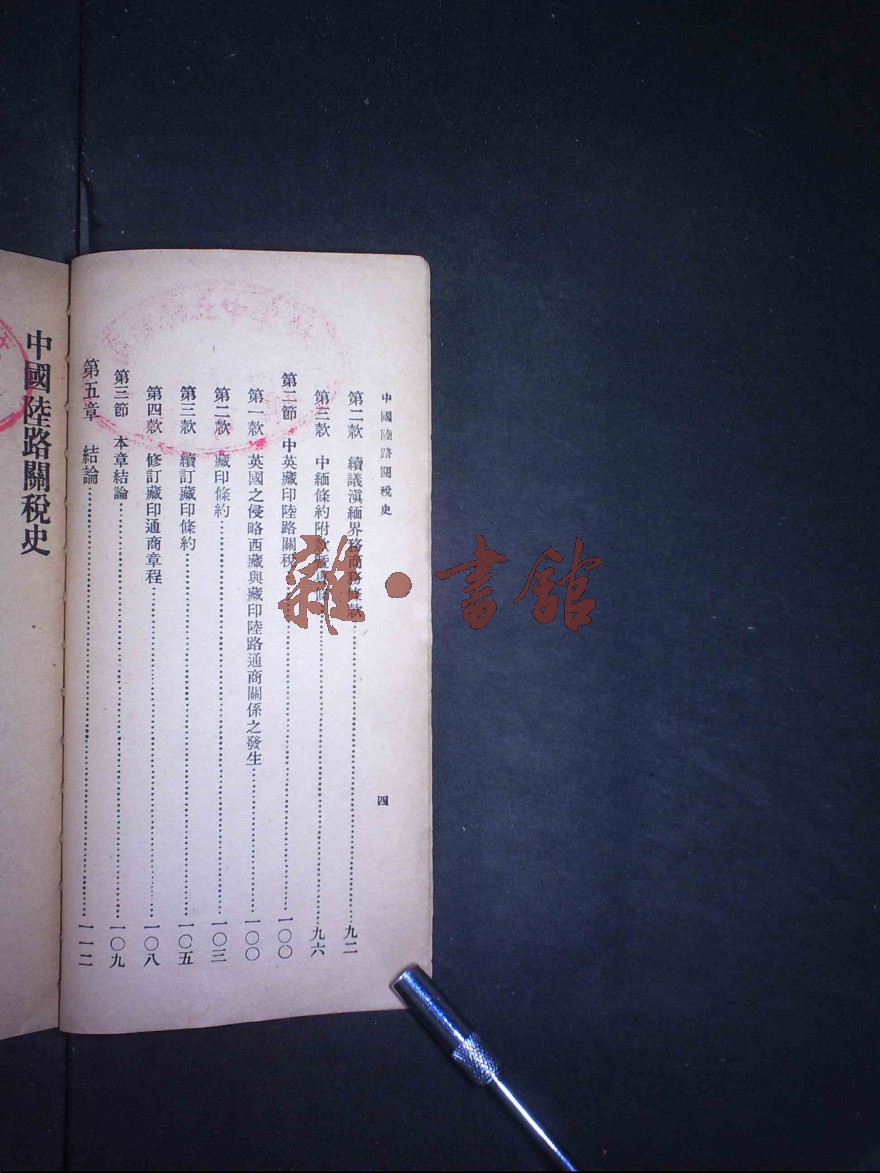 中國陸路關稅史
四
第二款 續議滇緬界務商務條款……九二
第三款 中緬條約附款……九六
第二節 中英藏印陸路關稅……一〇〇
第一款 英國之侵略西藏與藏印陸路通商關係之發生……一〇〇
第二款 藏印條約……一〇三
第三款 續訂藏印條約……一〇五
第四款 修訂藏印通商章程……一〇八
第三節 本章結論……一〇九
第五章 結論……一一二
中國陸路關稅史
雜·書館